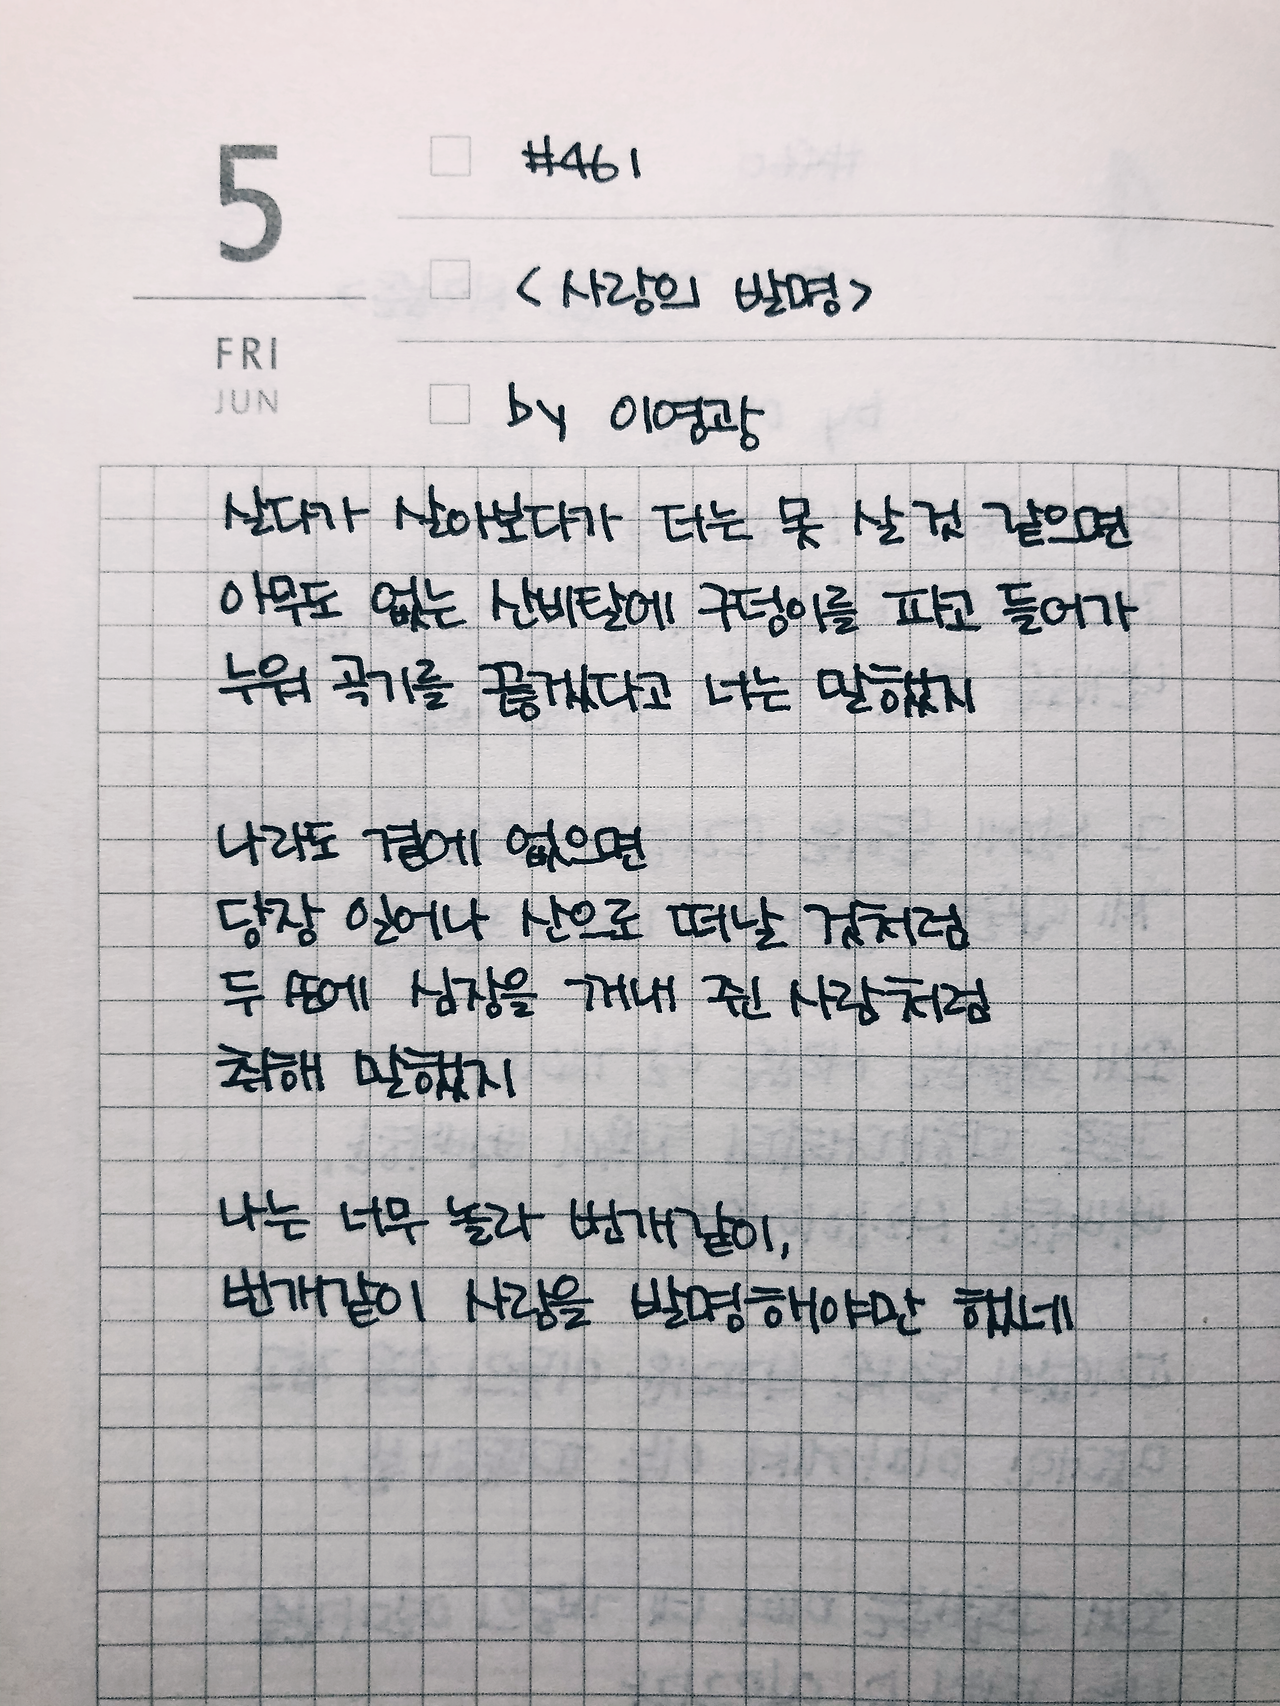 5
FRI
JUN
#461
<사랑의 발명>
by 이영광
살다가 살아보다가 더는 못 살 것 같으면
아무도 없는 산비탈에 구덩이를 파고 들어가
누워 곡기를 끊겠다고 너는 말했지
나라도 곁에 없으면
당장 일어나 산으로 떠날 것처럼
두 손에 심장을 꺼내 쥔 사람처럼
취해 말했지
나는 너무 놀라 번개같이,
번개같이 사랑을 발명해야만 했네